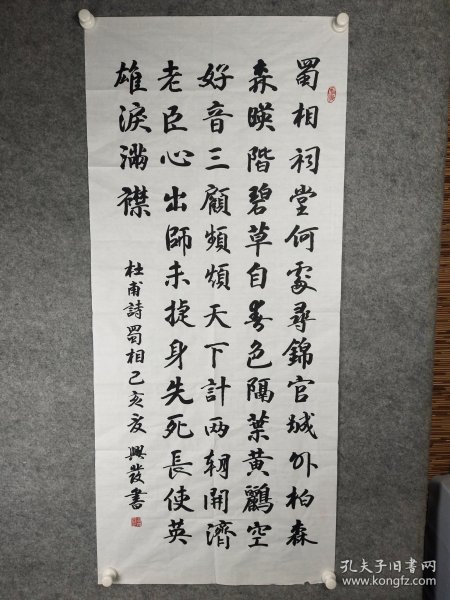 蜀相祠堂何處尋錦官城外柏森
森暎階碧草自春色隔葉黃鸝空
好音三顧頻煩天下計兩朝開濟
老臣心出師未捷身失死長使英
雄淚滿襟
杜甫詩蜀相己亥夏興發書
孔夫子旧书网
www.kongfz.com